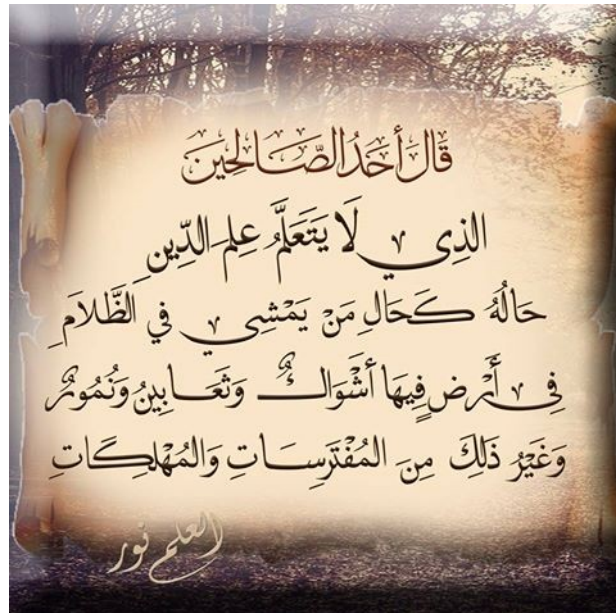 قَالَ أَحَدُ الصَّالِحِينَ
الذِي لَا يَتَعَلَّمُ عِلمَ الدِّينِ
حَالُهُ كَحَالِ مَنْ يَمْشِي فِي الظَّلَامِ
فِي أَرْضٍ فِيهَا أَشْوَاكٌ وَثَعَابِينُ وَنُمُورٌ
وَغَيْرُ ذَلِكَ مِنَ المُفْتَرِسَاتِ وَالمُهْلِكَاتِ
العلم نور